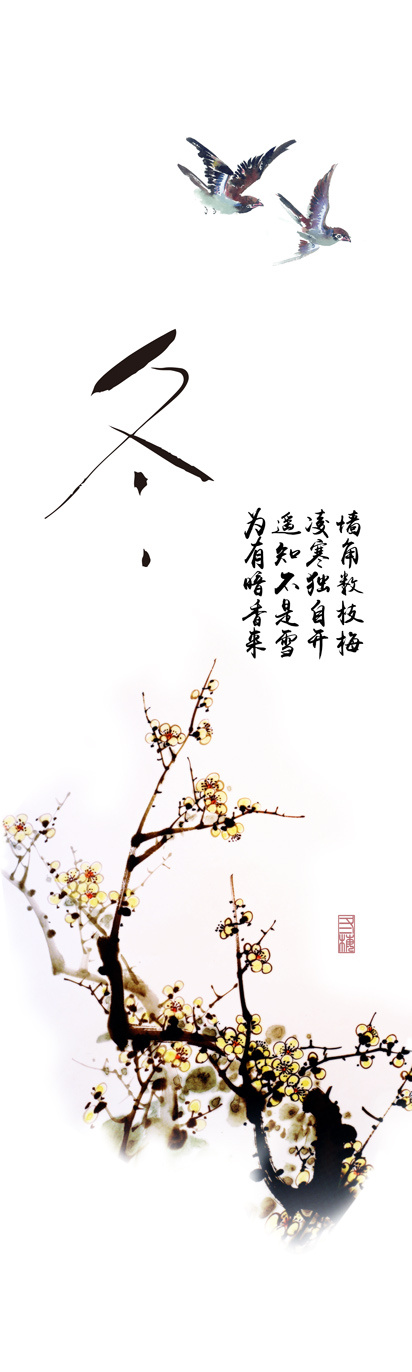 冬
墙角数枝梅
凌寒独自开
遥知不是雪
为有暗香来